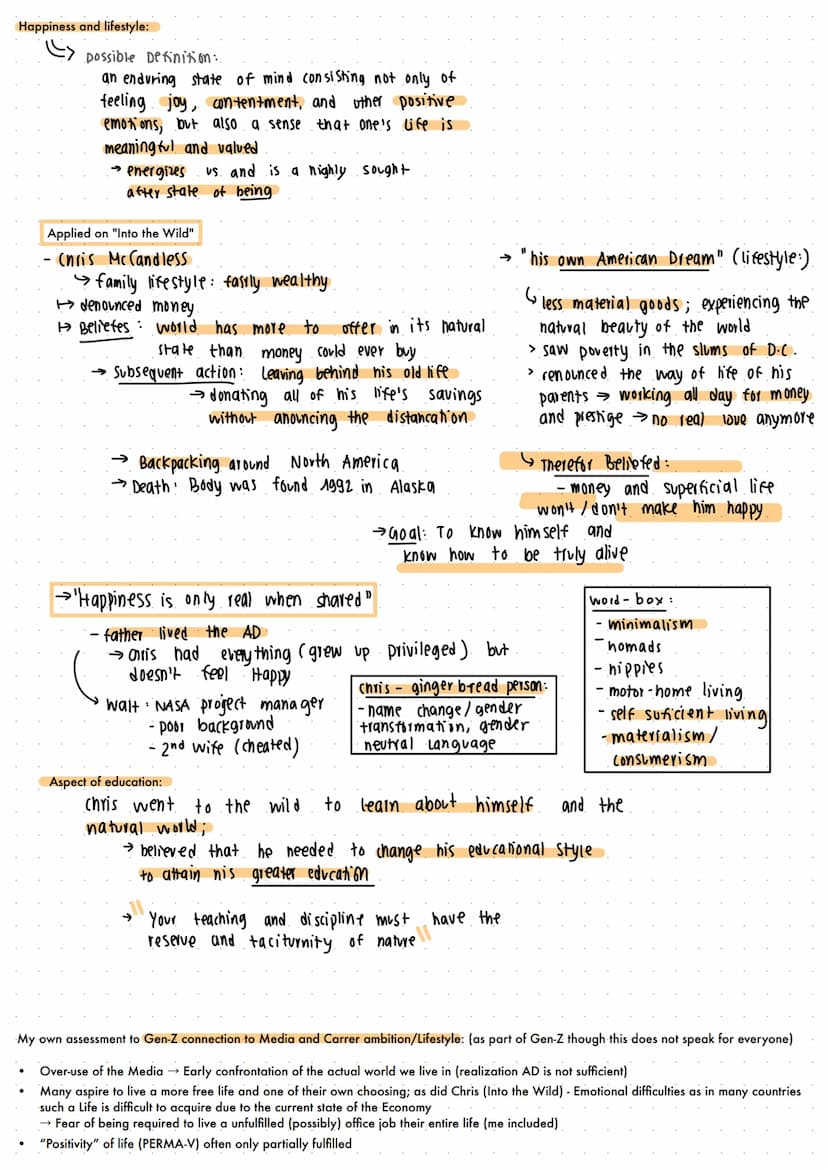 Happiness and lifestyle:
↳ possible Definition:
an enduring state of mind consisting not only of
feeling joy, contentment, and other positive
emotions, but also a sense that one's life is
meaningful and valued
→ energizes us and is a highly sought
after state of being
Applied on "Into the Wild"
- Chris McCandless
↳ family lifestyle: fairly wealthy
↦ denounced money
↦ Beliefes: world has more to offer in its natural
state than money could ever buy
→ Subsequent action: Leaving behind his old life
→ donating all of his life's savings
without anouncing the distancation
→ Backpacking around North America
→ Death: Body was found 1992 in Alaska
→ "his own American Dream" (lifestyle:)
↳ less material goods; experiencing the
natural beauty of the world
> saw poverty in the slums of D.C.
> renounced the way of life of his
parents → working all day for money
and prestige → no real love anymore
↳ Therefor Beliefed:
- money and superficial life
won't/don't make him happy
→ Goal: To know himself and
know how to be truly alive
→ "Happiness is only real when shared"
- father lived the AD
→ Chris had everything (grew up privileged) but
doesn't feel Happy
Walt: NASA project manager
- poor background
- 2nd wife (cheated)
Chris - ginger bread person:
- name change/gender
transformation, gender
neutral language
word-box:
- minimalism
- nomads
- hippies
- motor-home living
- self suficient living
- materialism/
consumerism
Aspect of education:
Chris went to the wild to learn about himself and the
natural world;
→ believed that he needed to change his educational style
to attain his greater education
→ "Your teaching and discipline must have the
reserve and taciturnity of nature"
My own assessment to Gen-Z connection to Media and Carrer ambition/Lifestyle: (as part of Gen-Z though this does not speak for everyone)
• Over-use of the Media → Early confrontation of the actual world we live in (realization AD is not sufficient)
• Many aspire to live a more free life and one of their own choosing; as did Chris (Into the Wild) - Emotional difficulties as in many countries
such a Life is difficult to acquire due to the current state of the Economy
→ Fear of being required to live a unfulfilled (possibly) office job their entire life (me included)
• "Positivity" of life (PERMA-V) often only partially fulfilled